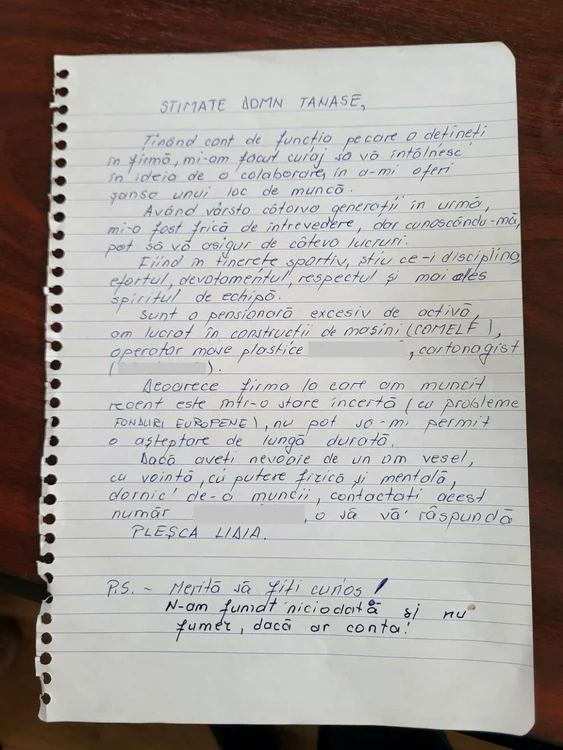 STIMATE DOMN TANASE,
Ținând cont de funcția pe care o dețineți
în firmă, mi-am făcut curaj să vă întâlnesc
în ideia de o colaborare, în a-mi oferi
șansa unui loc de muncă.
Având vârsta câtorva generații în urmă,
mi-a fost frică de întrevedere, dar cunoscându-mă,
pot să vă asigur de câteva lucruri.
Fiind în tinerețe sportiv, știu ce-i disciplina,
efortul, devotamentul, respectul și mai ales
spiritul de echipă.
Sunt o pensionară excesiv de activă,
am lucrat în construcții de mașini (COMELF),
operator mase plastice , cartonagist
( ).
Deoarece firma la care am muncit
recent este într-o stare incertă (cu probleme
FONDURI EUROPENE), nu pot să-mi permit
o așteptare de lungă durată.
Dacă aveți nevoie de un om vesel,
cu voință, cu putere fizică și mentală,
dornic de-a muncii, contactați acest
număr , o să vă răspundă
PLEȘCA LIDIA.
P.S. - Merită să fiți curios!
N-am fumat niciodată și nu
fumez, dacă ar conta!